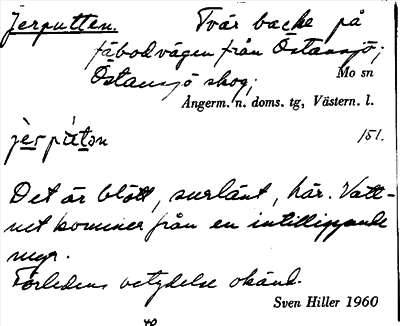 Jerputten. Tvär backe på
fäbodvägen från Östansjö;
Östansjö skog; Mo sn
Ångerm. n. doms. tg, Västern. l.
151.
Det är blött, surlänt, här. Vatt-
net kommer från en intilliggande
myr.
Förledens betydelse okänd.
Sven Hiller 1960
40